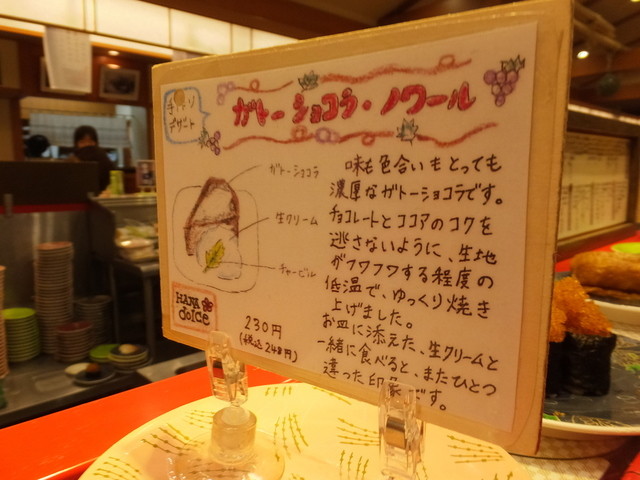 手作り
デザート
ガトーショコラ・ノワール
ガトーショコラ
生クリーム
チャービル
HANA
doLCe
230円
(税込248円)
味も色合いもとっても
濃厚なガトーショコラです。
チョコレートとココアのコクを
逃さないように、生地
がフワフワする程度の
低温で、ゆっくり焼き
上げました。
お皿に添えた、生クリームと
一緒に食べると、またひとつ
違った印象です。